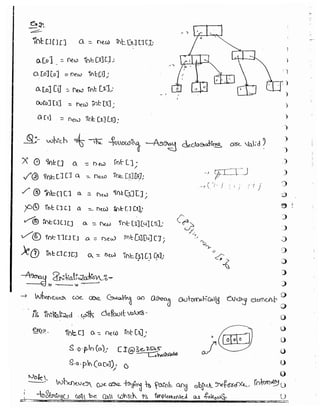 Ex 2:
int[][][] a = new int[2][][];
a[0] = new int[3][];
a[0][0] = new int[1];
a[0][1] = new int[2];
a[0][2] = new int[3];
a[1] = new int[2][2];
Q:- which of the following Array declarations are valid?
X ① int[] a = new int[];
✓② int[][] a = new int[3][4];
✓③ int[][] a = new int[3][];
X④ int[][] a = new int[][4];
✓⑤ int[][][] a = new int[3][4][5];
✓⑥ int[][][] a = new int[3][4][];
X⑦ int[][][] a = new int[3][][5];
Array Initialization :-
→ Whenever we are Creating an array automatically Every element
is initialized with default values.
Ex:- int[] a = new int[3];
S.o.pln(a); [I@3e25a5
hashcode
S.o.pln(a[0]); 0
0 0 0
a
Note:
Whenever we are trying to print any object reference internally
toString() will be call which is implemented as follows